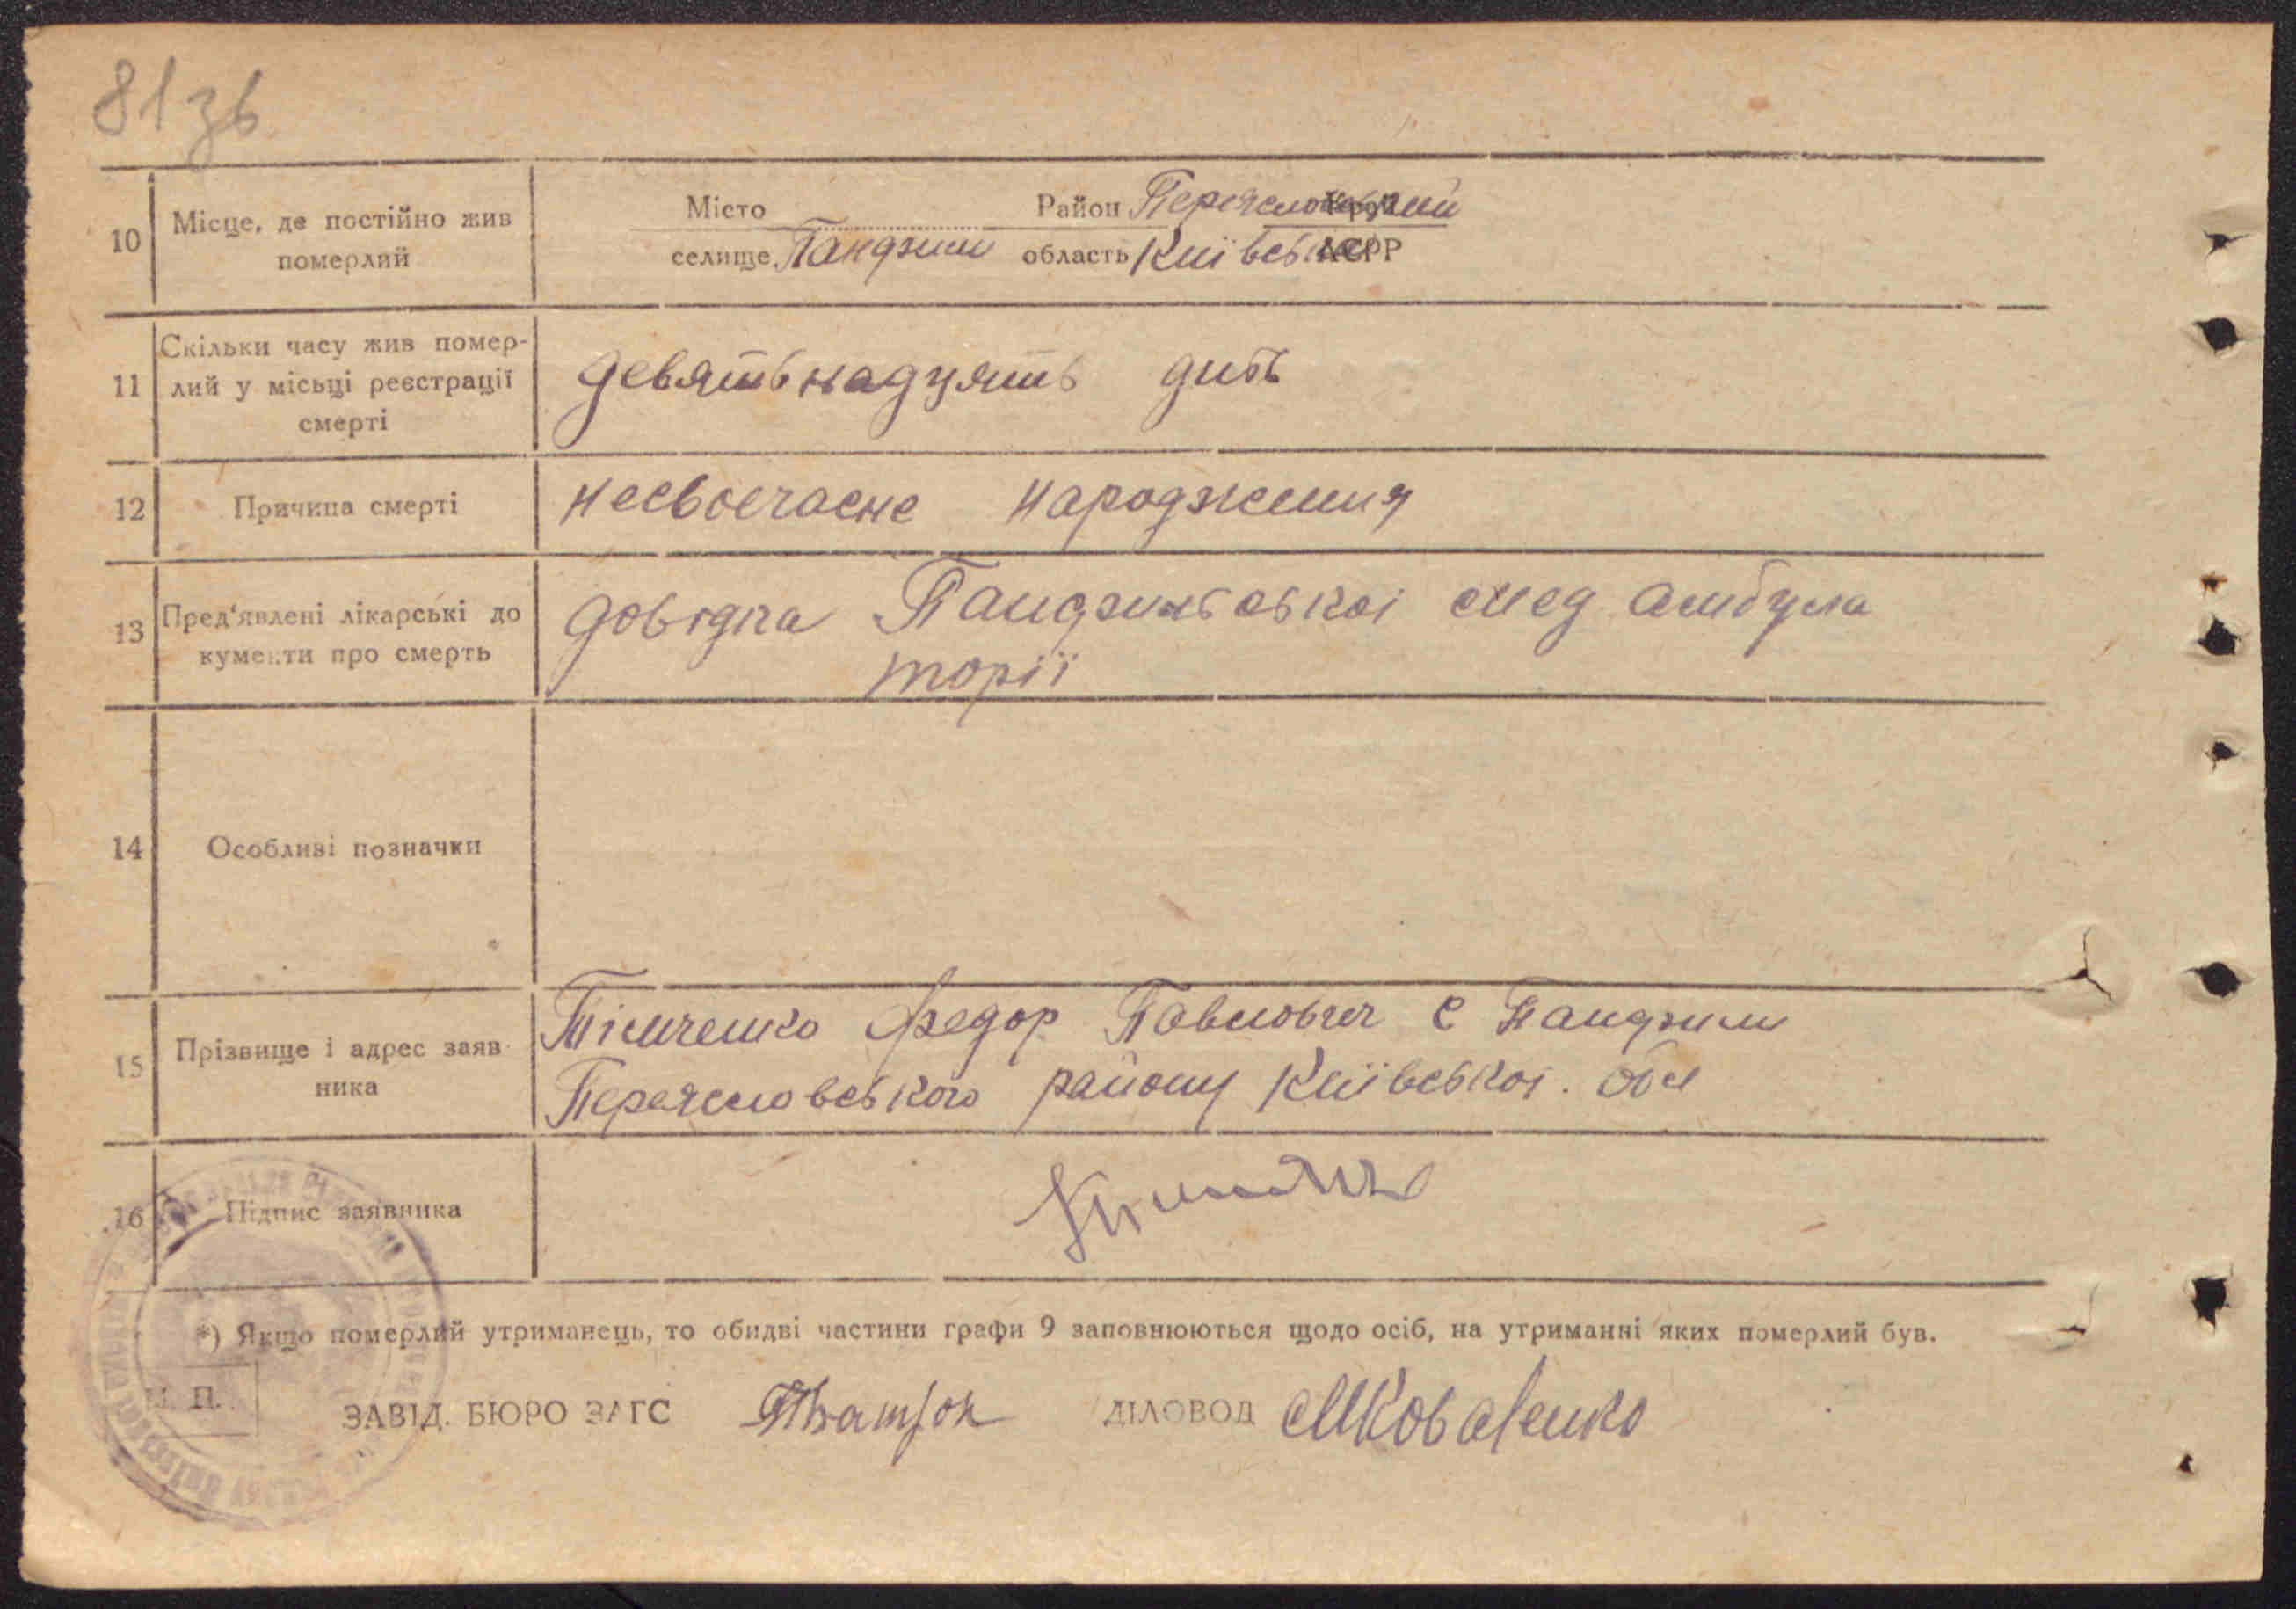 81 зв
10 Місце, де постійно жив померлий
Місто Район Переяславський край
селище Пандзин область Київська АСРР
11 Скільки часу жив помер-
лий у місьці реєстрації
смерті
девятьнадцять
12 Причина смерті
несвоєчасне народження
13 Пред'явлені лікарські до
кументи про смерть
довідка мед амбула
торії
14 Особливі позначки
15 Прізвище і адрес заяв-
ника
Тімченко Федор Павлович с
Переяславського району Київської. обл
16 Підпис заявника
*) Якщо померлий утриманець, то обидві частини графи 9 заповнюються щодо осіб, на утриманні яких померлий був.
М. П.
ЗАВІД. БЮРО ЗАГС ДІЛОВОД МКоваленко